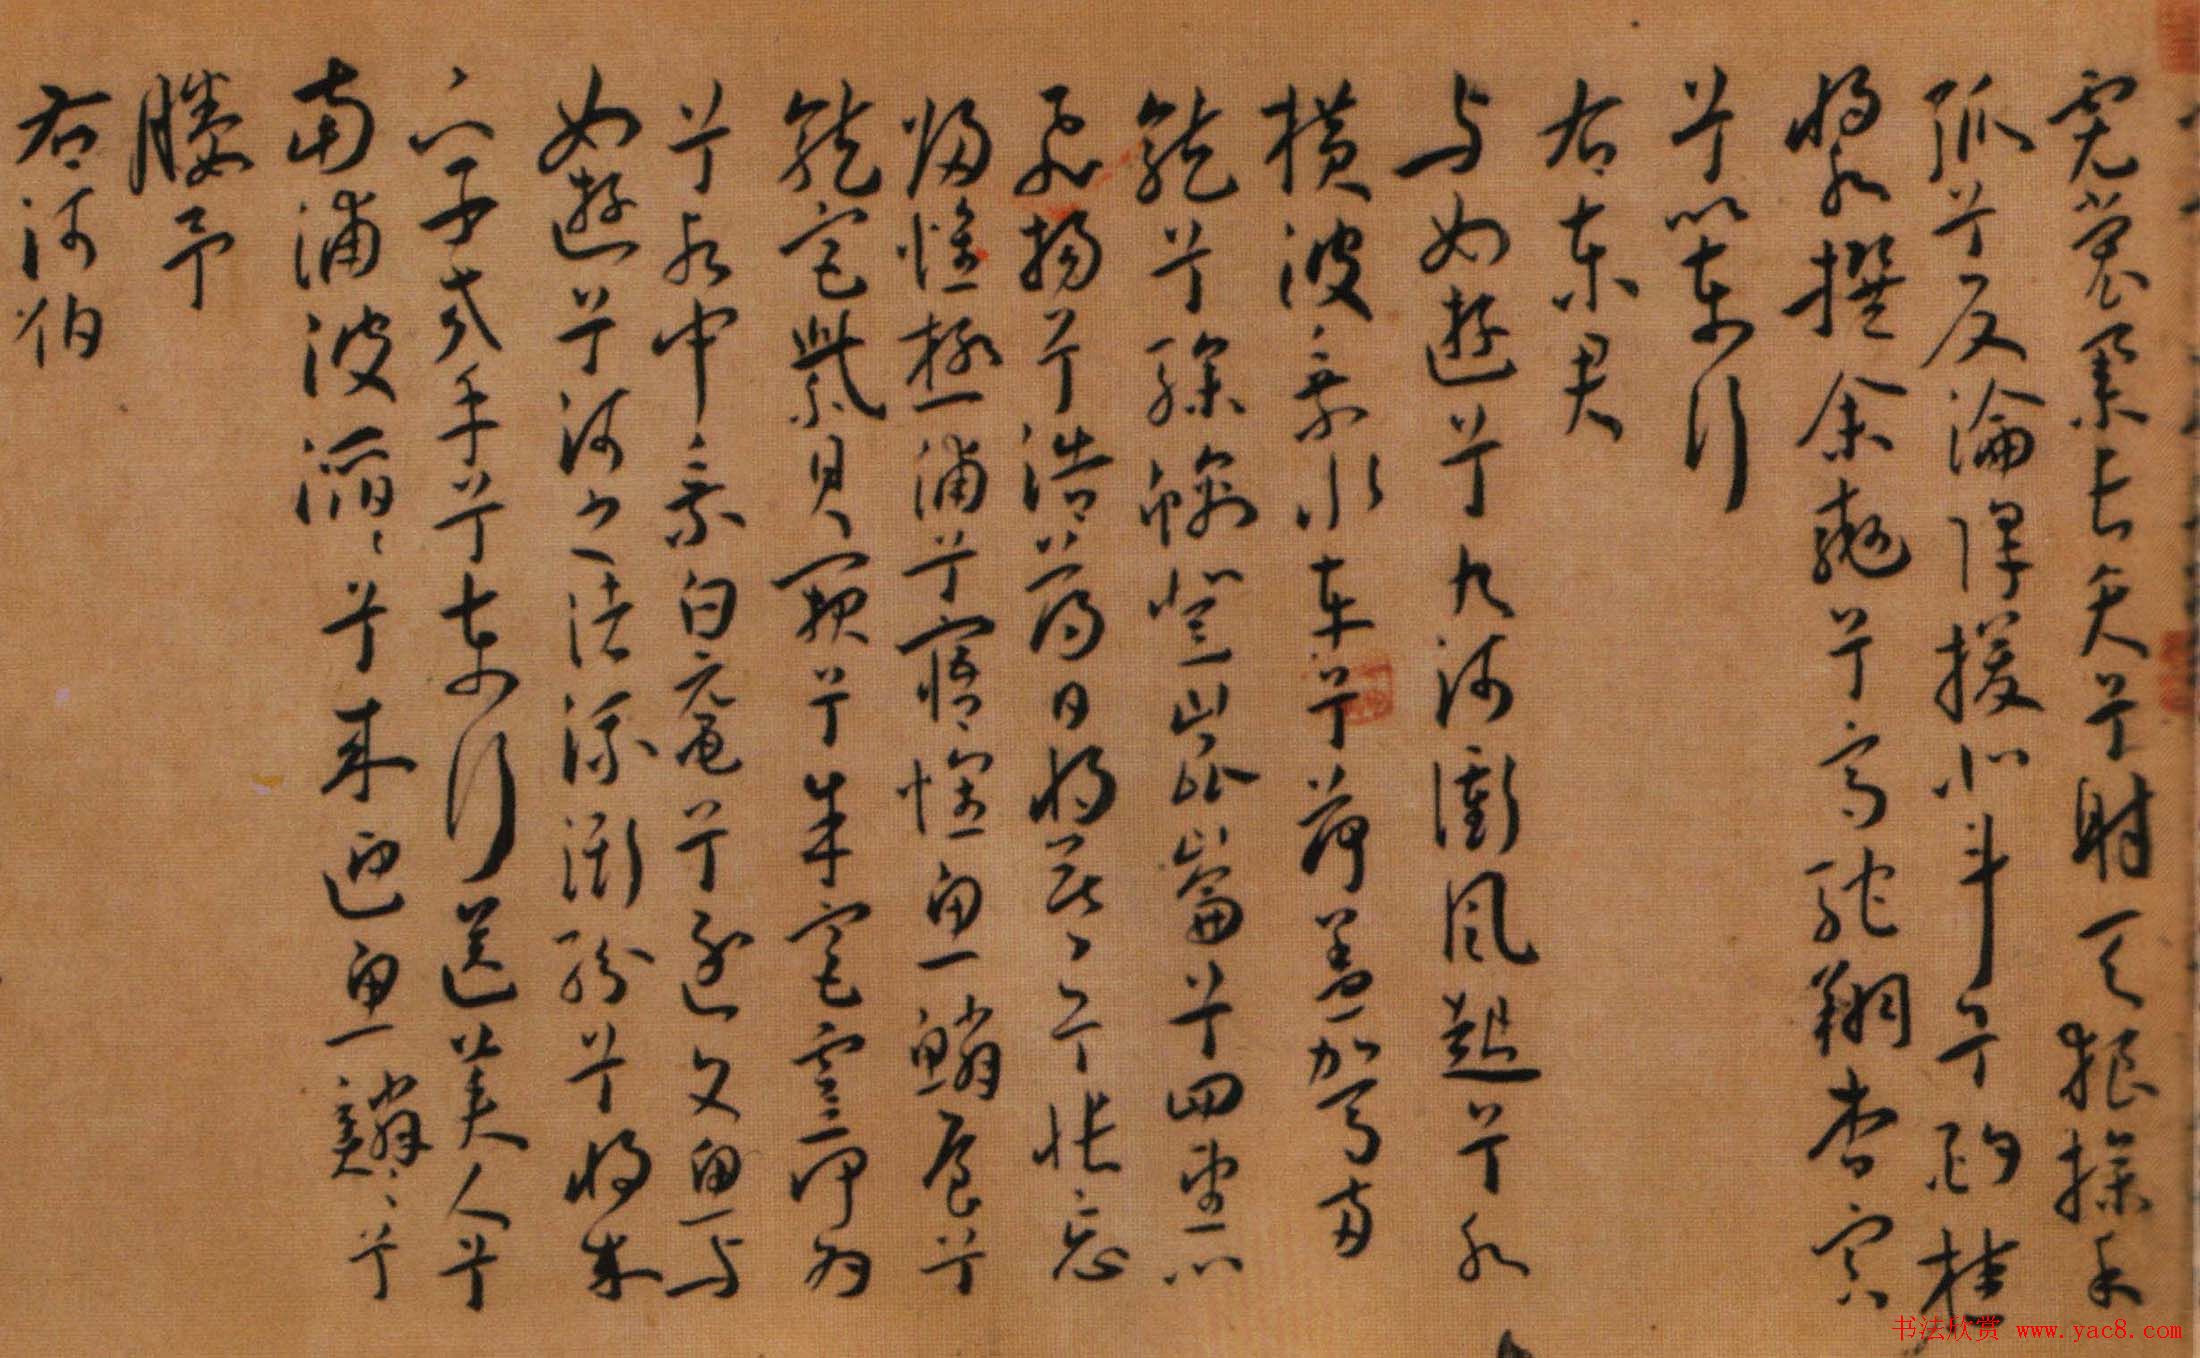 霓裳舉長矢兮射天狼操余
弧兮反淪降援北斗兮酌桂
漿撰余轡兮高駝翔杳冥
兮以東行
右東君
与女遊兮九河衝風起兮水
橫波乘水車兮荷蓋駕兩
龍兮驂螭登崑崙兮四望心
飛揚兮浩蕩日將暮兮悵忘
歸惟極浦兮寤懷魚鱗屋兮
龍宮紫貝闕兮朱宮靈何為
兮水中乘白黿兮逐文魚与
女遊兮河之渚流澌紛兮將來
下子交手兮東行送美人兮
南浦波滔々兮來迎魚鱗々兮
媵予
右河伯
书法欣赏 www.yac8.com